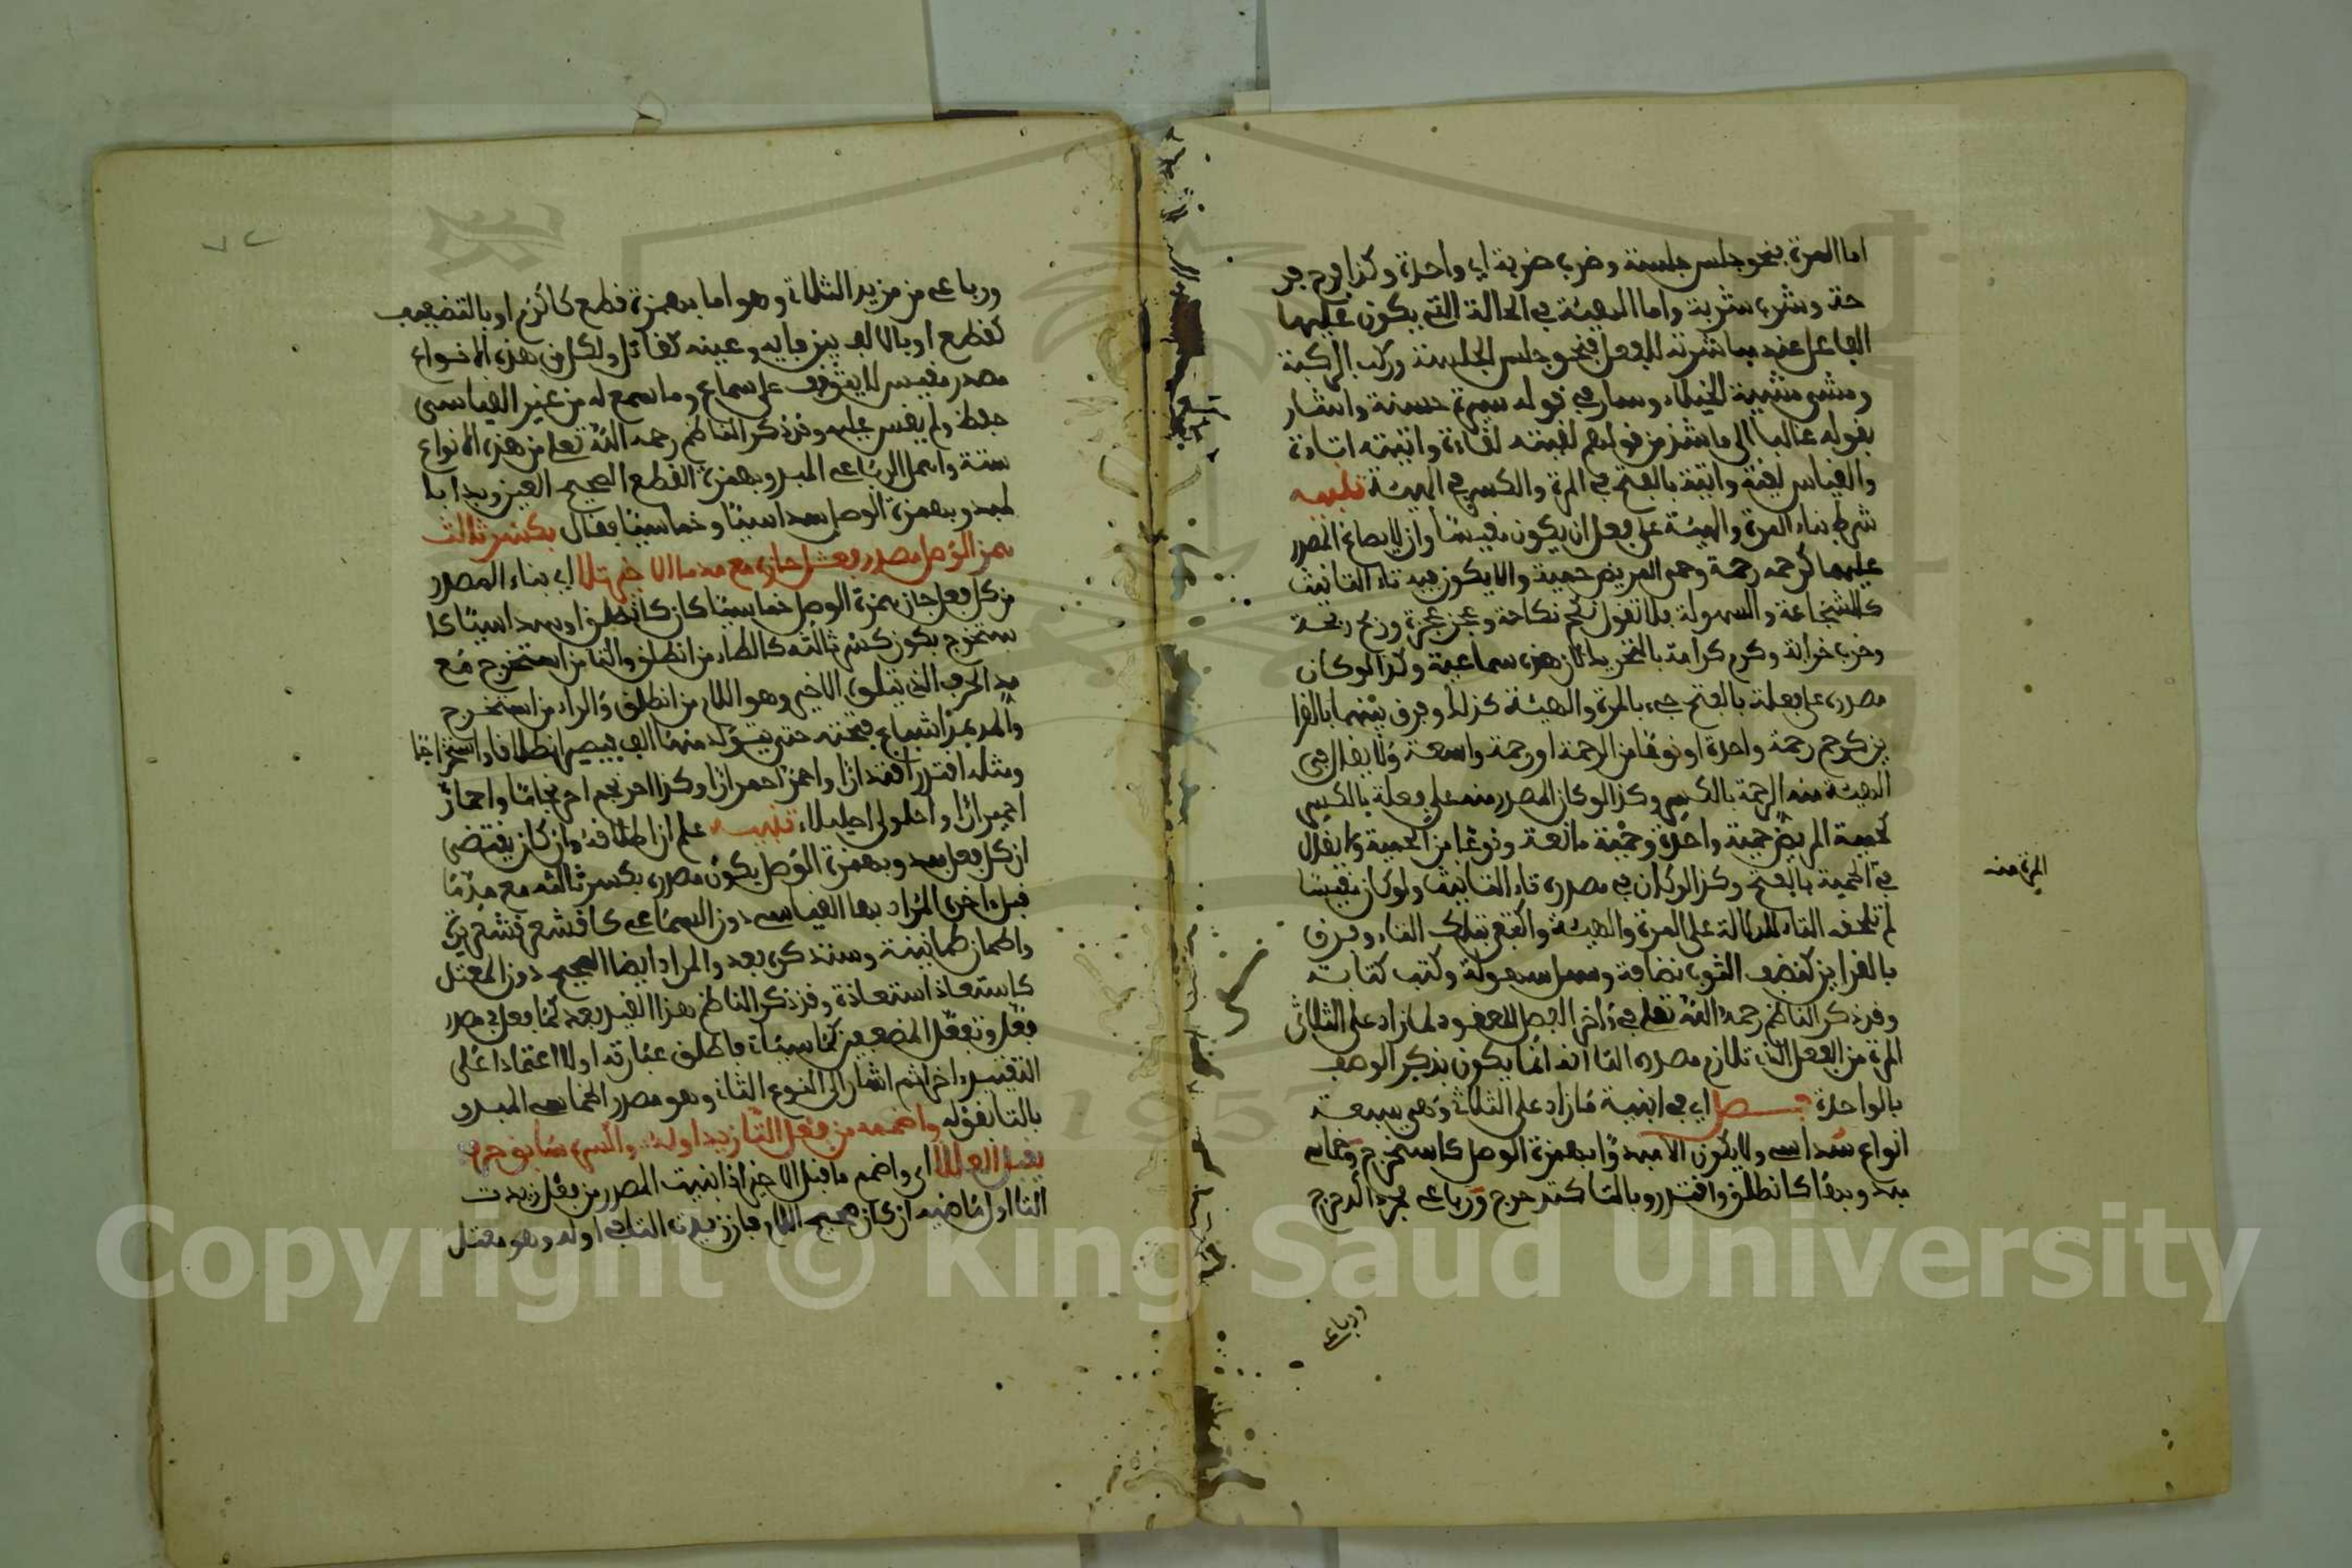 اما المرة فنحو جلس جلسة وضرب ضربة اي واحدة وكذا فرح فر
حة وشرب شربة واما الهيئة في الحالة التي يكون عليها
الفاعل عند مباشرته للفعل فنحو جلس الجلسة وركب الركبة
ومشى مشية الخيلاء وسار في قوله سيرة حسنة واشار
بقوله غالبا الى ما شذ من قولهم لقيته لقاءة واتيته اتيانة
والقياس لقية واتية بالفتح في المرة والكسر في الهيئة تنبيه
شرط بناء المرة والهيئة على فعل ان يكون مقيسا وان لا يصاغ المصدر
عليهما كرحمه رحمة وحمى المريض حمية والا يكون فيه تاء التانيث
كالشجاعة والسهولة فلا تقول نكح نكاحة وعجز عجزة ورمح رمحة
وخرب خرابة وكرم كرامة بالتجريد لان هذه سماعية وكذا لو كان
مصدره على فعلة بالفتح جيء بالمرة والهيئة كذلك وفرق بينهما بالقرا
ين كرحم رحمة واحدة او نوعا من الرحمة او رحمة واسعة ولا يقال في
الهيئة منه الرحمة بالكسر وكذا لو كان المصدر منه على فعلة بالكسر
كحمية المريض حمية واحدة وحمية مانعة ونوعا من الحمية ولا يقال
في الحمية بالفتح وكذا لو كان في مصدره تاء التانيث ولو كان مقيسا
المرة منه
لم تلحقه التاء للدلالة على المرة والهيئة واكتفي بتلك التاء وفرق
بالقراين كنضف الثوب نضافة وسهل سهولة وكتب كتابة
وقد ذكر الناظم رحمه الله تعلى في ءاخر الفصل المعقود لما زاد على الثلاثي
المرة من الفعل الذي تلازم مصدره التا انه انما يكون بذكر الوصف
بالواحدة فصل اي في ابنية ما زاد على الثلاثي وهي سبعة
انواع سداسي ولا يكون الا مبدوا بهمزة الوصل كاستخرج وخماسي
مبدوء بها كانطلق واقتدر وبالتا كتدحرج ورباعي مجرد كدحرج
ورباعي
ورباعي من مزيد الثلاثي وهو اما بهمزة قطع كاكرم او بالتضعيف
كقطع او بالالف بين فايه وعينه كقاتل ولكل من هذه الانواع
مصدر مقيس لا يتوقف على سماع وما سمع له من غير القياسي
حفظ ولم يقس عليه وقد ذكر الناظم رحمه الله تعلى من هذه الانواع
ستة واهمل الرباعي المبدو بهمزة القطع الصحيح العين وبدا با
لمبدو بهمزة الوصل سداسيا وخماسيا فقال بكسر ثالث
همز الوصل مصدر فعل حازه مع مد ما الاخير تلا اي بناء المصدر
من كل فعل حاز همزة الوصل خماسيا كان كانطلق او سداسيا كا
ستخرج بكون كسر ثالثه كالطاء من انطلق والتا من استخرج مع
مد الحرف الذي يتلوه الاخير وهو اللام من انطلق والراء من استخرج
والمد بمد اشباع فتحته حتى يتولد منها الف فيصير انطلاقا واستخراجا
ومثله اقتدر اقتدارا واحمر احمرارا وكذا احرنجم احرنجاما واحمار
احميرارا واحلولى احليلاء تنبيه علم ان اطلاقه وان كان يقتضي
ان كل فعل مبدو بهمزة الوصل يكون مصدره بكسر ثالثه مع مد ما
قبل ءاخره المراد بها القياسي دون السماعي كاقشعر قشعريرة
واطمان طمانينة وسنذكره بعد والمراد ايضا الصحيح دون المعتل
كاستعاذ استعاذة وقد ذكر الناظم هذا القيد بعد كما فعل في مصدر
فعل وتفعل المضعفين كما سياتي فاطلق عبارته اولا اعتمادا على
التقييد ءاخرا ثم اشار الى النوع الثاني وهو مصدر الخماسي المبدو
بالتا بقوله واضممه من فعل التا زيد اوله واكسره سابق حرف
يقبل العللا اي واضمم ما قبل الاخير اذا بنيت المصدر من فعل زيدت
التا اول ماضيه ان كان صحيح اللام فان زيدت التا في اوله وهو معتل